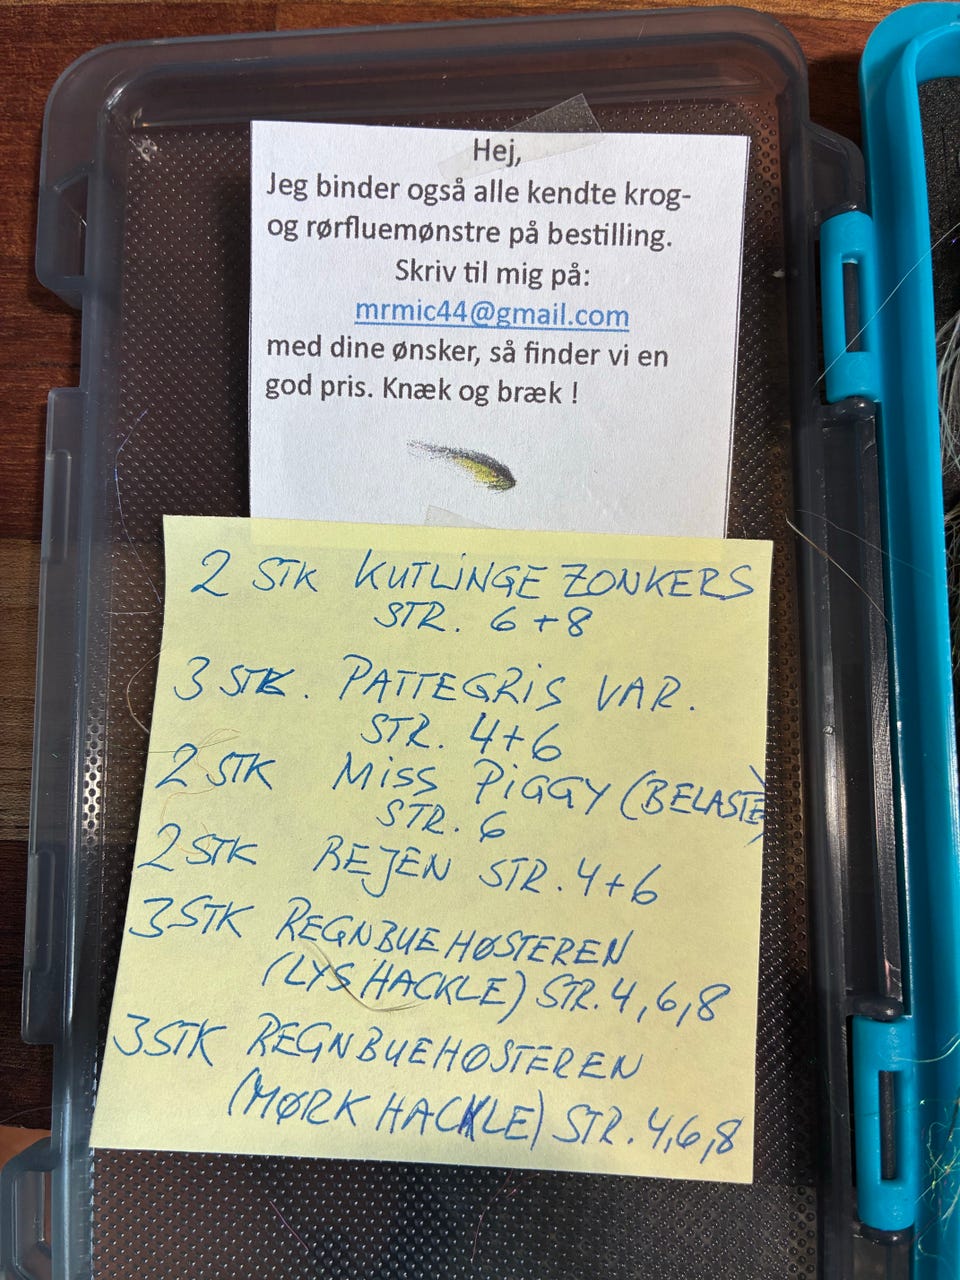 Hej,
Jeg binder også alle kendte krog-
og rørfluemønstre på bestilling.
Skriv til mig på:
mrmic44@gmail.com
med dine ønsker, så finder vi en
god pris. Knæk og bræk !
2 STK KUTLINGE ZONKERS
STR. 6+8
3 STK. PATTEGRIS VAR.
STR. 4+6
2 STK MISS PIGGY (BELASTET)
STR. 6
2 STK REJEN STR. 4+6
3 STK REGNBUEHØSTEREN
(LYS HACKLE) STR. 4,6,8
3 STK REGNBUEHØSTEREN
(MØRK HACKLE) STR. 4,6,8